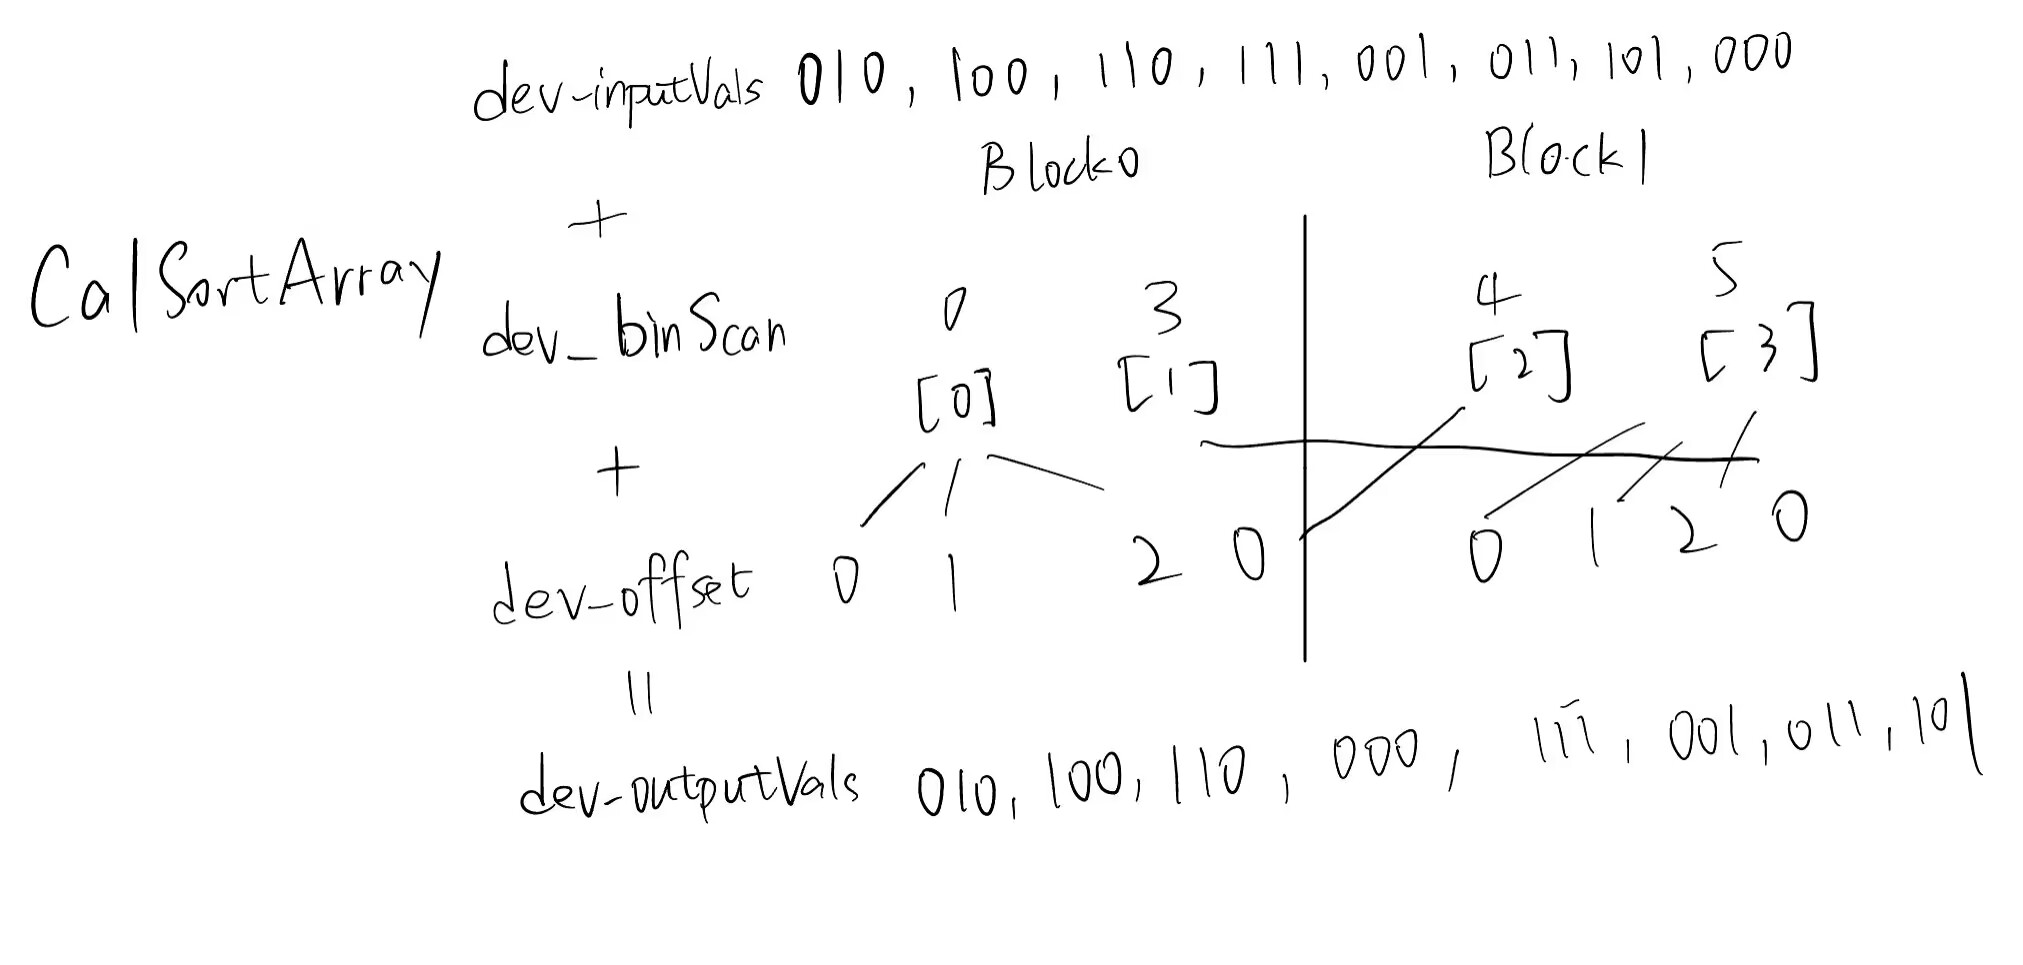 dev-inputVals 010, 100, 110, 111, 001, 011, 101, 000
Block0 Block1
+
CalSortArray
dev_binScan 0 3 4 5
[0] [1] [2] [3]
+
dev-offset 0 1 2 0 0 1 2 0
=
dev-outputVals 010, 100, 110, 000, 111, 001, 011, 101